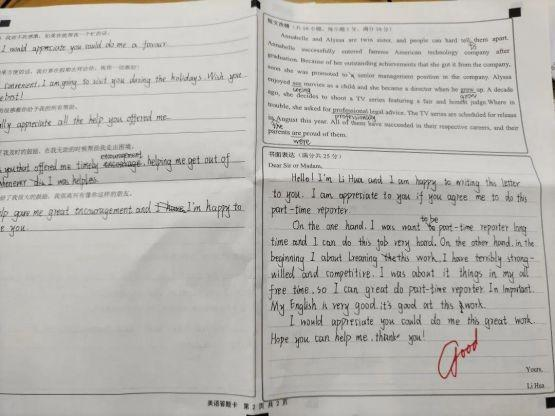 I would appreciate you could do me a favour.
I am going to visit you during the holidays. Wish you
appreciate all the help you offered me.
you that offered me timely encouragement, helping me get out of
whenever I was helpless.
gave me great encouragement and I'm happy to
you.
短文改错
Annabelle and Alyssa are twin sister, and people can hard tell them apart.
Annabelle successfully entered famous American technology company after
to
graduation. Because of her outstanding achievements that she got it from the company,
soon she was promoted to a senior management position in the company. Alyssa
enjoyed see movies and a child and she became a director when he grew up. A decade
seeing
ago, she decides to shoot a TV series featuring a fair and honest judge. Where in
trouble, she asked for professional legal advice. The TV series are scheduled for release
professionally
in August this year. All of them have succeeded in their respective careers, and their
the
parents are proud of them.
were
书面表达（满分共25分）
Dear Sir or Madam,
Hello! I'm Li Hua and I am happy to writing this letter
to you. I am appreciate to you if you agree me to do this
part-time reporter.
to be
On the one hand. I was want part-time reporter long
time and I can do this job very hard. On the other hand, in the
beginning I about learning this work. I have terribly strong-
willed and competitive. I was about it things in my all
free time, so I can great do part-time reporter. In Important.
My English is very good. it's good at this work.
I would appreciate you could do me this great work.
Hope you can help me. thank you!
Good
Yours,
Li Hua
英语答题卡 第 2 页 共 2 页